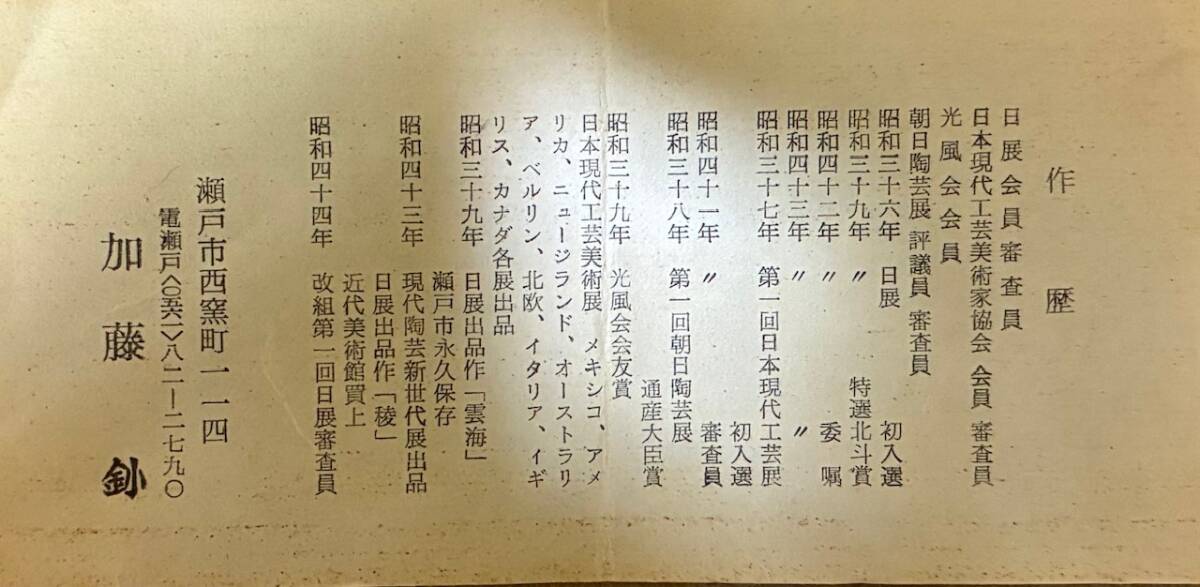 作歴
日展会員審査員
日本現代工芸美術家協会 会員 審査員
光風会会員
朝日陶芸展 評議員 審査員
昭和三十六年 日展 初入選
昭和三十九年 〃 特選北斗賞
昭和四十二年 〃 委嘱
昭和四十三年 〃 〃
昭和三十七年 第一回日本現代工芸展
初入選
昭和四十一年 〃 審査員
昭和三十八年 第一回朝日陶芸展
通産大臣賞
昭和三十九年 光風会会友賞
日本現代工芸美術展 メキシコ、アメ
リカ、ニュージランド、オーストラリ
ア、ベルリン、北欧、イタリア、イギ
リス、カナダ各展出品
昭和三十九年 日展出品作「雲海」
瀬戸市永久保存
昭和四十三年 現代陶芸新世代展出品
日展出品作「稜」
近代美術館買上
昭和四十四年 改組第一回日展審査員
瀬戸市西窯町一一四
電瀬戸〈〇五六一〉八二―二七九〇
加藤釥